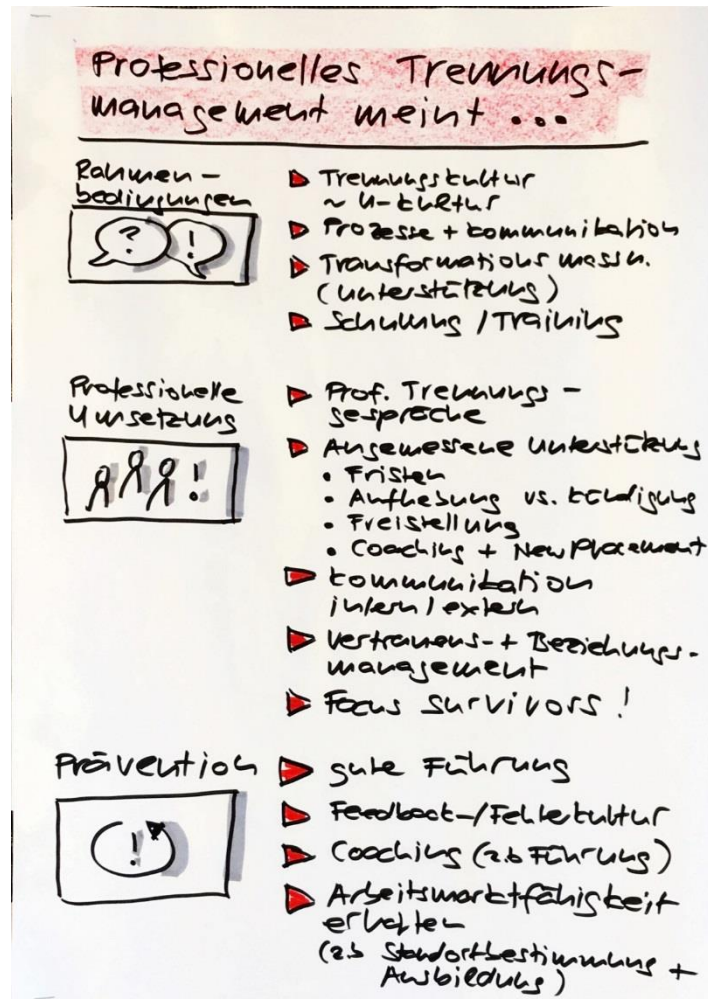 Professionelles Trennungs-
management meint ...
Rahmen-
bedingungen
? !
▶ Trennungskultur
~ U-Kultur
▶ Prozesse + Kommunikation
▶ Transformationsmassn.
(Unterstützung)
▶ Schulung / Training
Professionelle
Umsetzung
!
▶ Prof. Trennungs-
gespräche
▶ Angemessene Unterstützung
• Fristen
• Aufhebung vs. Kündigung
• Freistellung
• Coaching + New Placement
▶ Kommunikation
intern / extern
▶ Vertrauens- + Beziehungs-
management
▶ Focus Survivors!
Prävention
!
▶ gute Führung
▶ Feedback-/Fehlerkultur
▶ Coaching (z.b Führung)
▶ Arbeitsmarktfähigkeit
erhalten
(z.b Standortbestimmung +
Ausbildung)